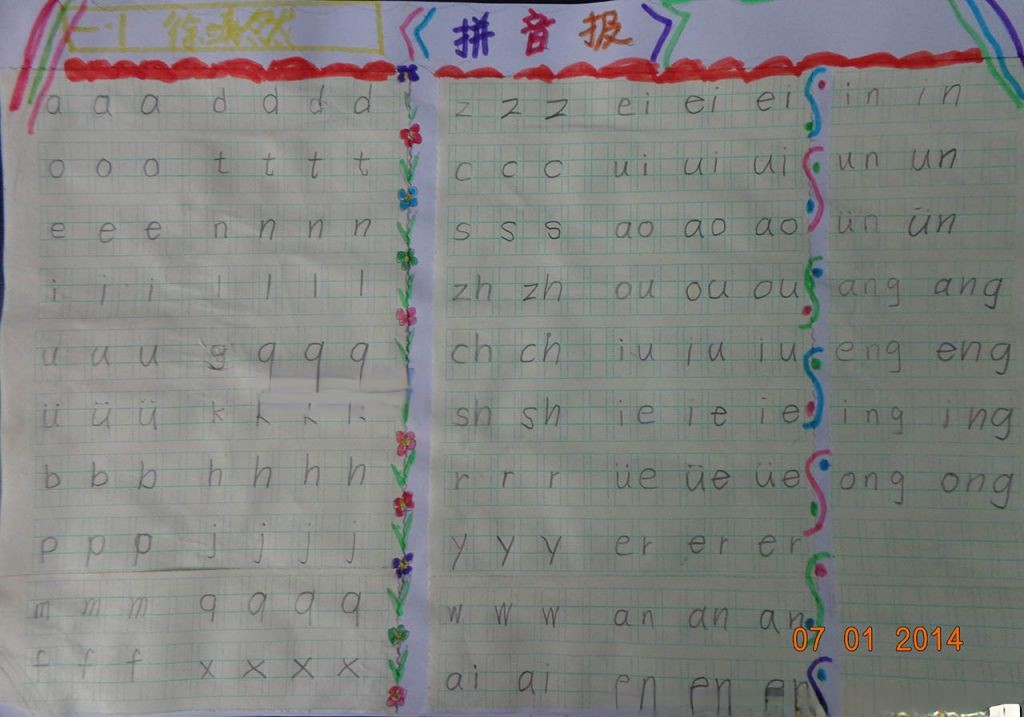 一.1 徐 然
拼音报
a a a d d d d
o o o t t t t
e e e n n n n
i i i l l l l
u u u g q q q
ü ü ü k k k k
b b b h h h h
p p p j j j j
m m m q q q q
f f f x x x x
z z z ei ei ei
c c c ui ui ui
s s s ao ao ao
zh zh ou ou ou
ch ch iu iu iu
sh sh ie ie ie
r r r üe üe üe
y y y er er er
w w w an an an
ai ai en en en
in in
un un
ün ün
ang ang
eng eng
ing ing
ong ong
07 01 2014